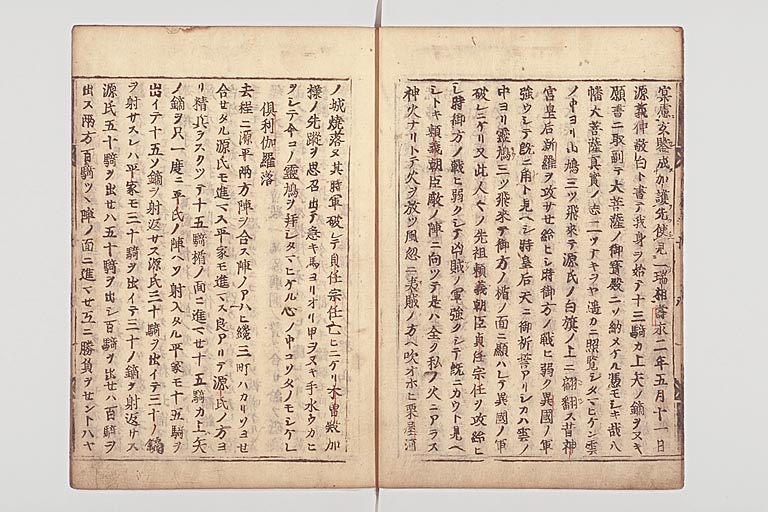 冥慮玄鑒成加護先使見一瑞相壽永二年五月十一日
源義仲敬白ト書テ我身ヲ始テ十三騎カ上矢ノ鏑ヲヌキ
願書ニ取副テ大菩薩ノ御寳殿ニソ納メケル憑モシキ哉八
幡大菩薩真實ノ志二ツナキヲヤ遥カニ照覧シタマヒケン雲
ノ中ヨリ山鳩三ツ飛來テ源氏ノ白旗ノ上ニ翩翻ス昔神
宮皇后新羅ヲ攻サセ給ヒシ時御方ノ戦ヒ弱ク異國ノ軍
強ウシテ既ニ角ト見ヘシ時皇后天ニ御祈誓アリシカハ雲ノ
中ヨリ靈鳩三ツ飛來テ御方ノ楯ノ面ニ顕ハレテ異國ノ軍
破レニケリ又此人々ノ先祖頼義朝臣貞任宗任ヲ攻給ヒ
シ時御方ノ戦ヒ弱クシテ凶賊ノ軍強クシテ既ニカウト見ヘ
シトキ頼義朝臣敵ノ陣ニ向ツテ是ハ全ク私ノ火ニアラス
神火ナリトテ火ヲ放ツ風忽ニ夷賊ノ方ヘ吹オホヒ栗屋河
ノ城焼落ヌ其時軍破レテ貞任宗任亡ヒニケリ木曽殿加
様ノ先蹤ヲ思召出テ急キ馬ヨリオリ甲ヲヌキ手水ウカヒ
ヲシテ今コノ靈鳩ヲ拝シタマヒケル心ノ中コソタノモシケレ
倶利伽羅落
去程ニ源平両方陣ヲ合ス陣ノアハヒ纔三町ハカリソヨセ
合セタル源氏モ進マス平家モ進マス良アリテ源氏ノ方ヨ
リ精兵ヲスクツテ十五騎楯ノ面ニ進マセ十五騎カ上矢
ノ鏑ヲ只一度ニ平氏ノ陣ヘソ射入タル平家モ十五騎ヲ
出イテ十五ノ鏑ヲ射返サス源氏三十騎ヲ出イテ三十ノ鏑
ヲ射サスレハ平家モ三十騎ヲ出イテ三十ノ鏑ヲ射返サス
源氏五十騎ヲ出セハ五十騎ヲ出シ百騎ヲ出セハ百騎ヲ
出ス両方百騎ツヽ陣ノ面ニ進マセ互ニ勝負ヲセントハヤ